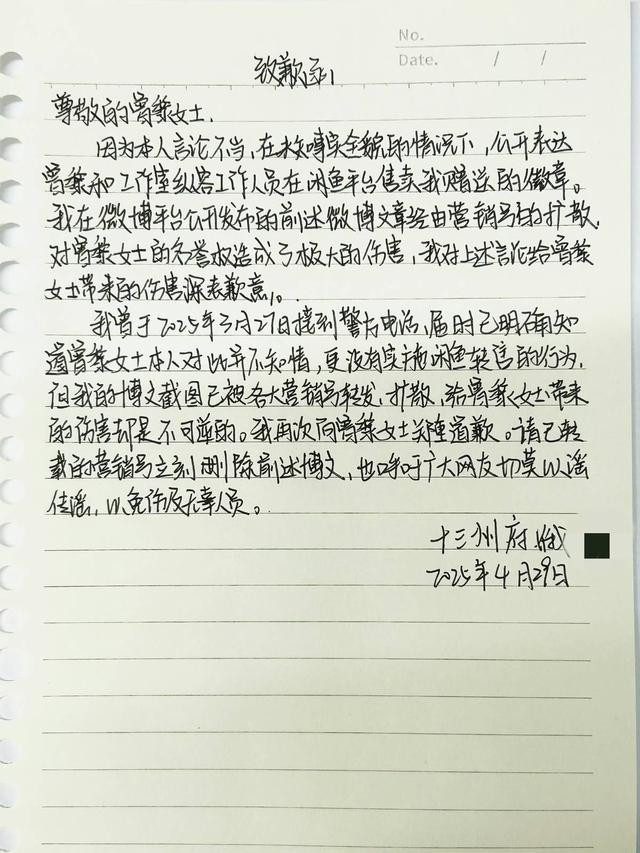 No.
Date. / /
致歉函
尊敬的曾黎女士:
因为本人言论不当,在未知晓全貌的情况下,公开表达
曾黎和工作室纵容工作人员在闲鱼平台售卖我赠送的徽章。
我在微博平台公开发布的前述微博文章经由营销号的扩散,
对曾黎女士的名誉权造成了极大的伤害,我对上述言论给曾黎
女士带来的伤害深表歉意。
我曾于2025年3月27日接到警方电话,届时已明确知
道曾黎女士本人对此并不知情,更没有实施闲鱼转售的行为,
但我的博文截图已被各大营销号转发、扩散,给曾黎女士带来
的伤害却是不可逆的。我再次向曾黎女士郑重道歉。请已转
载的营销号立刻删除前述博文,也呼吁广大网友切莫以谣
传谣,以免伤及无辜人员。
十三州府
2025年4月29日